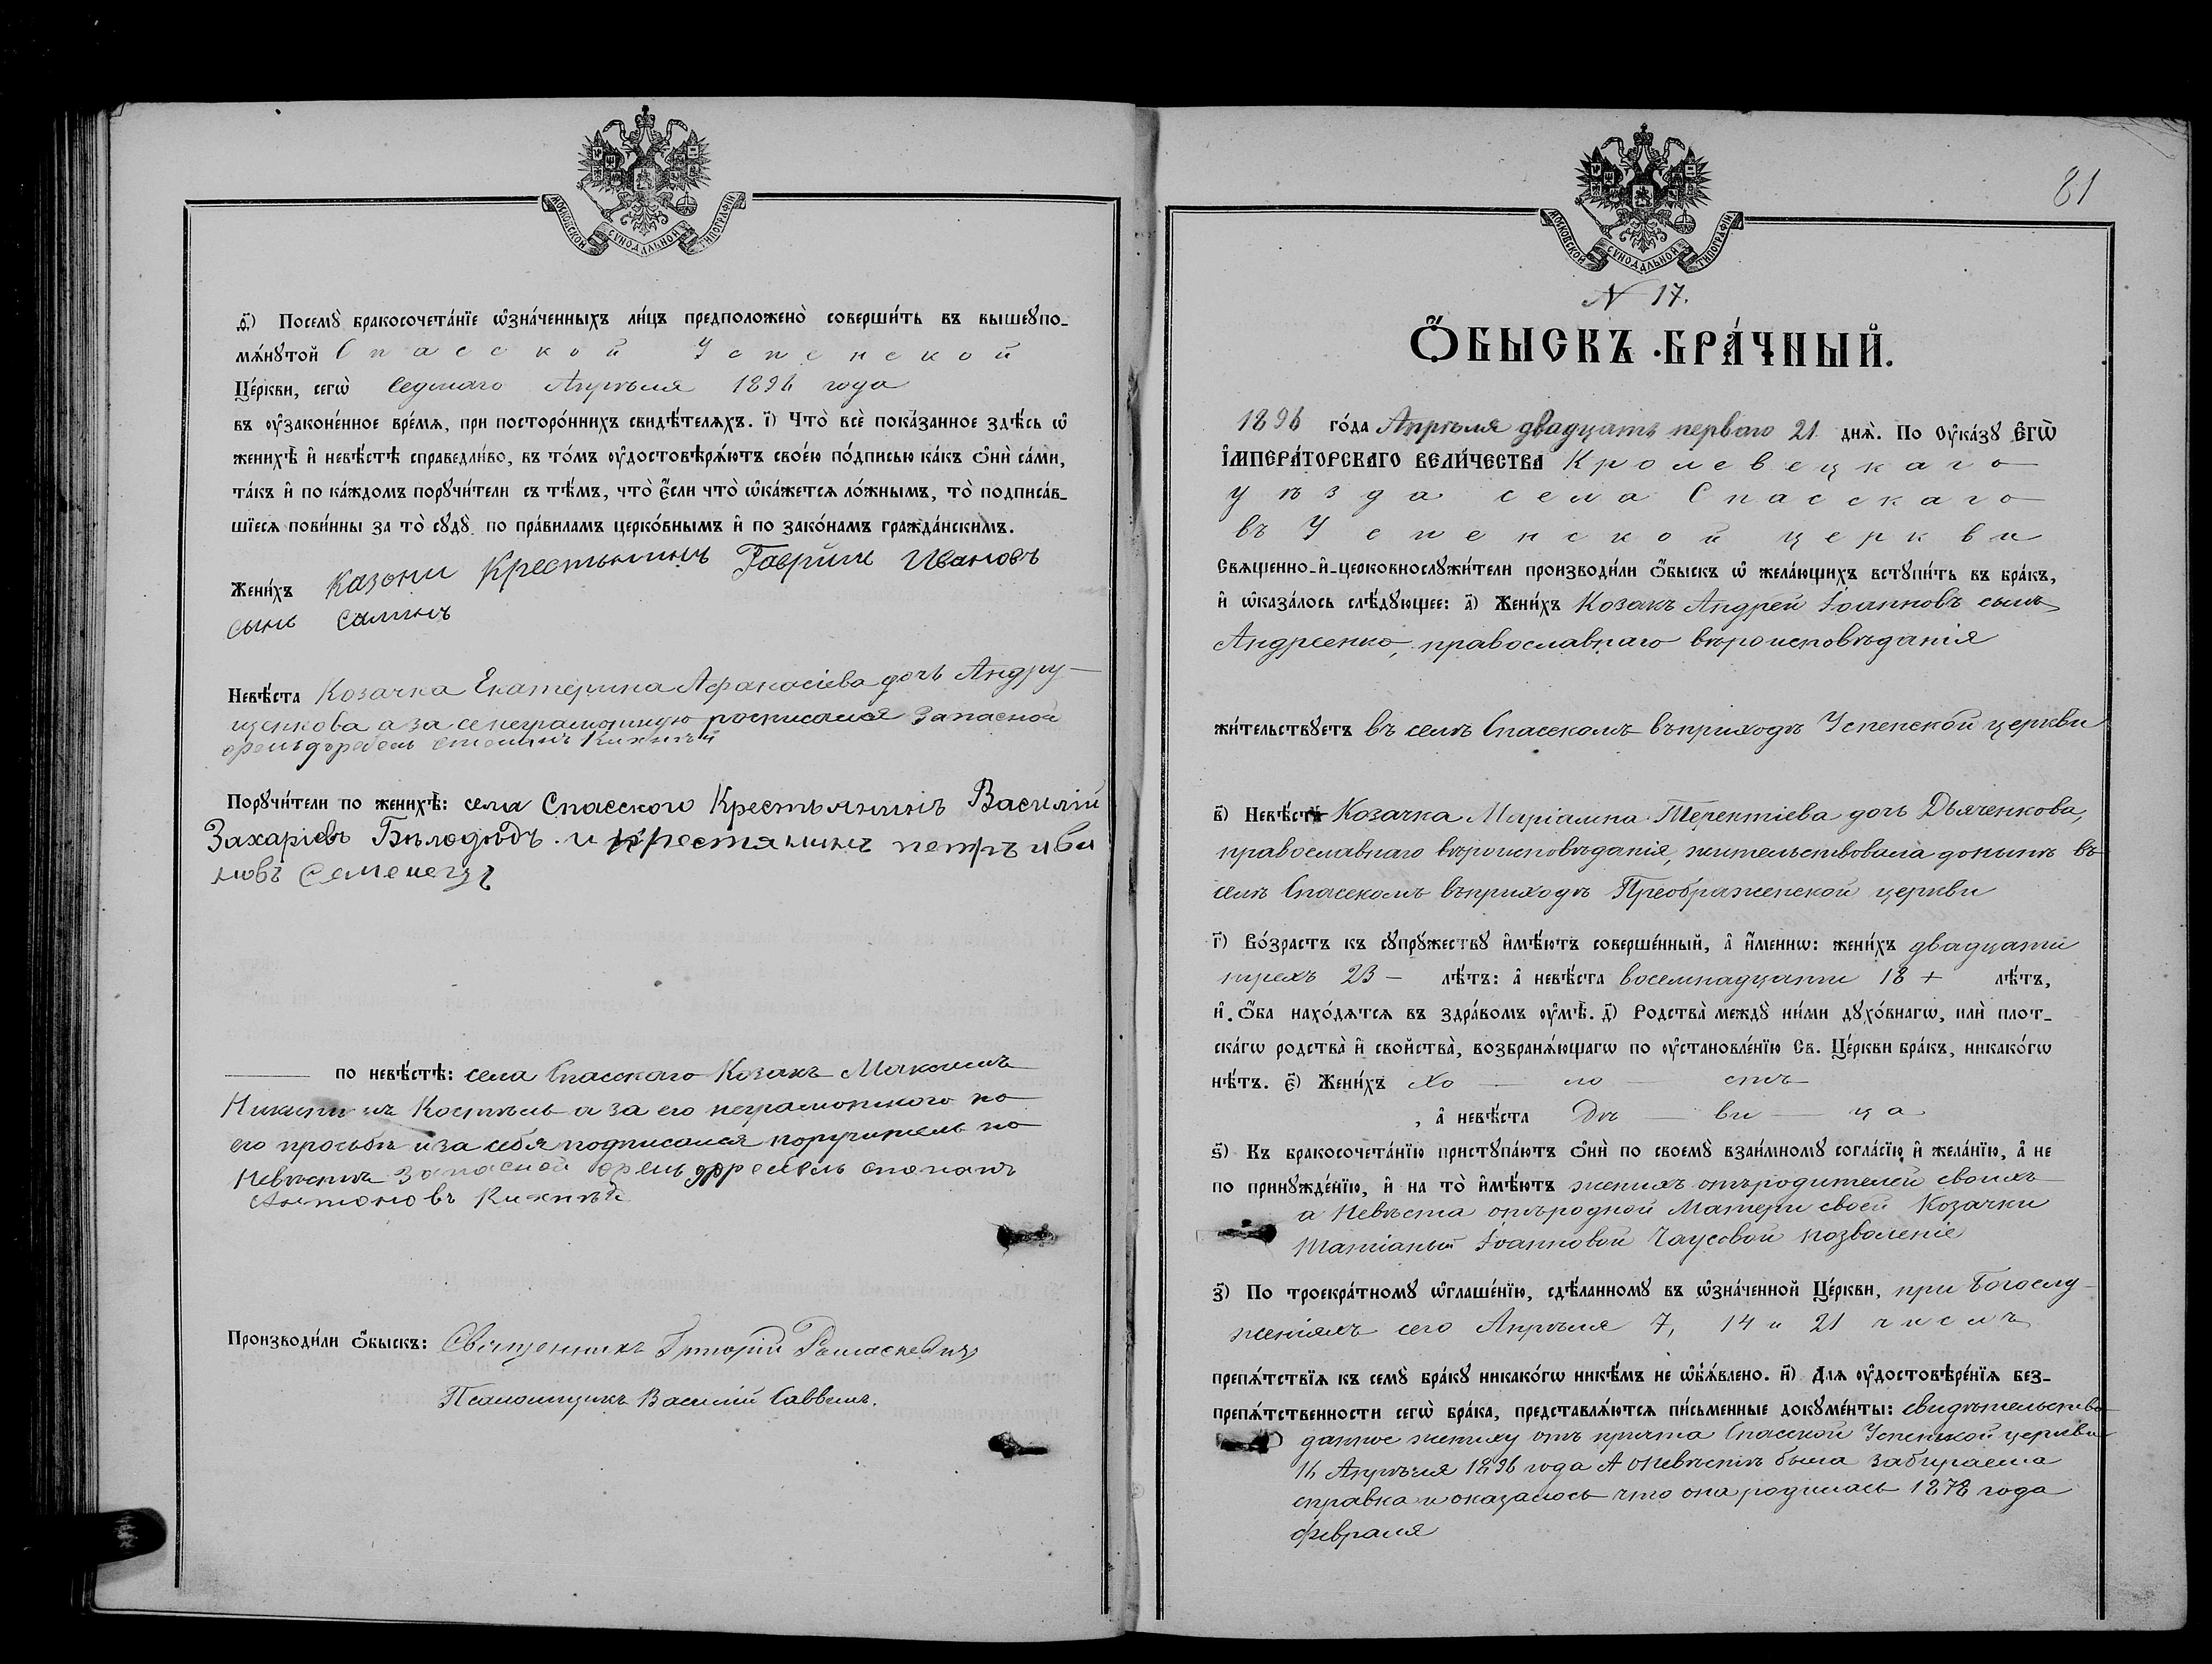 МОСКОВСКОЙ СѴНОДАЛЬНОЙ ТИПОГРАФІИ
ѳ҃) Посемꙋ̀ бракосочета́нїе ѡ҆зна́ченныхъ ли́цъ предположено̀ соверши́ть въ вышеꙋпо-
мѧ́нꙋтой Спасской Успенской
Це́ркви, сегѡ̀ седмаго Апрѣля 1896 года
въ ᲂу҆законе́нное вре́мѧ, при посторо́ннихъ свидѣ́телѧхъ. і҃) Что̀ всѐ пока́занное здѣ́сь ѡ҆
женихѣ̀ и҆ невѣ́стѣ справедли́во, въ то́мъ ᲂу҆достовѣрѧ́ютъ свое́ю по́дписью ка́къ ѻ҆нѝ са́ми,
та́къ и҆ по ка́ждомъ порꙋчи́тели съ тѣ́мъ, что̀ є҆́сли что̀ ѡ҆ка́жетсѧ ло́жнымъ, то̀ подписа́в-
шїесѧ пови́нны за то̀ сꙋдꙋ̀ по пра́виламъ церко́внымъ и҆ по зако́намъ гражда́нскимъ.
Жени́хъ Казони Крестьнинъ Гаврилъ Ивановъ
сынъ Салинъ
Невѣ́ста Козачка Екатерина Афанасіева дочь Андру-
щенкова а за се неграмотную росписался Запасной
фельдфебель Степанъ
Порꙋчи́тели по женихѣ̀: села Спасского Крестьянинъ Василій
Захаріевъ Бѣлодѣдъ. и крестянинъ петръ ива
новъ Семенецъ
по невѣ́стѣ: села Спасскаго Козакъ Максимъ
Костыль а за его неграмотного по
его просьбѣ и за себя подписался поручитель по
Невѣстѣ Запасной фельдфебель степанъ
Антоновъ
Производи́ли ѻ҆́быскъ: Священникъ Григорій Ромаскевичъ
Псаломщикъ Василій Саввичъ.
81
МОСКОВСКОЙ СѴНОДАЛЬНОЙ ТИПОГРАФІИ
N 17.
Ѻ҆́БЫСКЪ БРА́ЧНЫЙ.
1896 го́да Апрѣля двадцать перваго 21 днѧ̀. По Оу҆ка́зꙋ Є҆гѡ̀
І҆МПЕРА́ТОРСКАГО ВЕЛИ́ЧЕСТВА Кролевецкаго
уѣзда села Спасскаго
въ Успенской церкви
Свѧще́нно-и҆-церковнослꙋжи́тели производи́ли ѻ҆́быскъ ѡ҆ жела́ющихъ встꙋпи́ть въ бра́къ,
и҆ ѡ҆каза́лось слѣ́дꙋющее: а҃) Жени́хъ Козакъ Андрей Іоанновъ сынъ
Андреенко, православнаго вѣроисповѣданія
жи́тельствꙋетъ въ селѣ Спасскомъ въ приходѣ Успенской церкви
в҃) Невѣ́ста Козачка Маріамна Терентіева дочь Дьяченкова,
православнаго вѣроисповѣданія, жительствовала донынѣ въ
селѣ Спасскомъ въ приходѣ Преображенской церкви
г҃) Во́зрастъ къ сꙋпрꙋ́жествꙋ и҆мѣ́ютъ соверше́нный, а҆ и҆́меннѡ: жени́хъ двадцати
трехъ 23 - лѣ́тъ: а҆ невѣ́ста восемнадцати 18 + лѣ́тъ,
и҆ ѻ҆́ба нахо́дѧтсѧ въ здра́вомъ ᲂу҆мѣ̀. д҃) Родства̀ междꙋ̀ ни́ми дꙋхо́внагѡ, и҆лѝ плот-
ска́гѡ родства̀ и҆ сво́йства̀, возбранѧ́ющагѡ по ᲂу҆становле́нїю Св. Це́ркви бра́къ, никако́гѡ
нѣ́тъ. є҃) Жени́хъ хо — ло — стъ
, а҆ невѣ́ста дѣ — ви — ца
ѕ҃) Къ бракосочета́нїю пристꙋпа́ютъ ѻ҆нѝ по своемꙋ̀ взаи́мномꙋ согла́сїю и҆ жела́нїю, а҆ не
по принꙋжде́нїю, и҆ на то̀ и҆мѣ́ютъ женихъ отъ родителей своихъ
а Невѣста отъ родной Матери своей Козачки
Татіаны Іоанновой Чаусовой позволеніе
з҃) По троекра́тномꙋ ѡ҆глаше́нїю, сдѣ́ланномꙋ въ ѡ҆зна́ченной Це́ркви, при Богослу-
женіяхъ сего Апрѣля 7, 14 и 21 числъ
препѧ́тствїѧ къ семꙋ̀ бра́кꙋ никако́гѡ никѣ́мъ не ѡ҆б̾ѧ́влено. и҃) Длѧ ᲂу҆достовѣре́нїѧ без-
препѧ́тственности сегѡ̀ бра́ка, представлѧ́ютсѧ пи́сьменные докꙋме́нты: свидѣтельство
данное жениху отъ причта Спасской Успенской церкви
16 Апрѣля 1896 года А о невѣстѣ была забираема
справка и оказалось что она родилась 1878 года
февраля